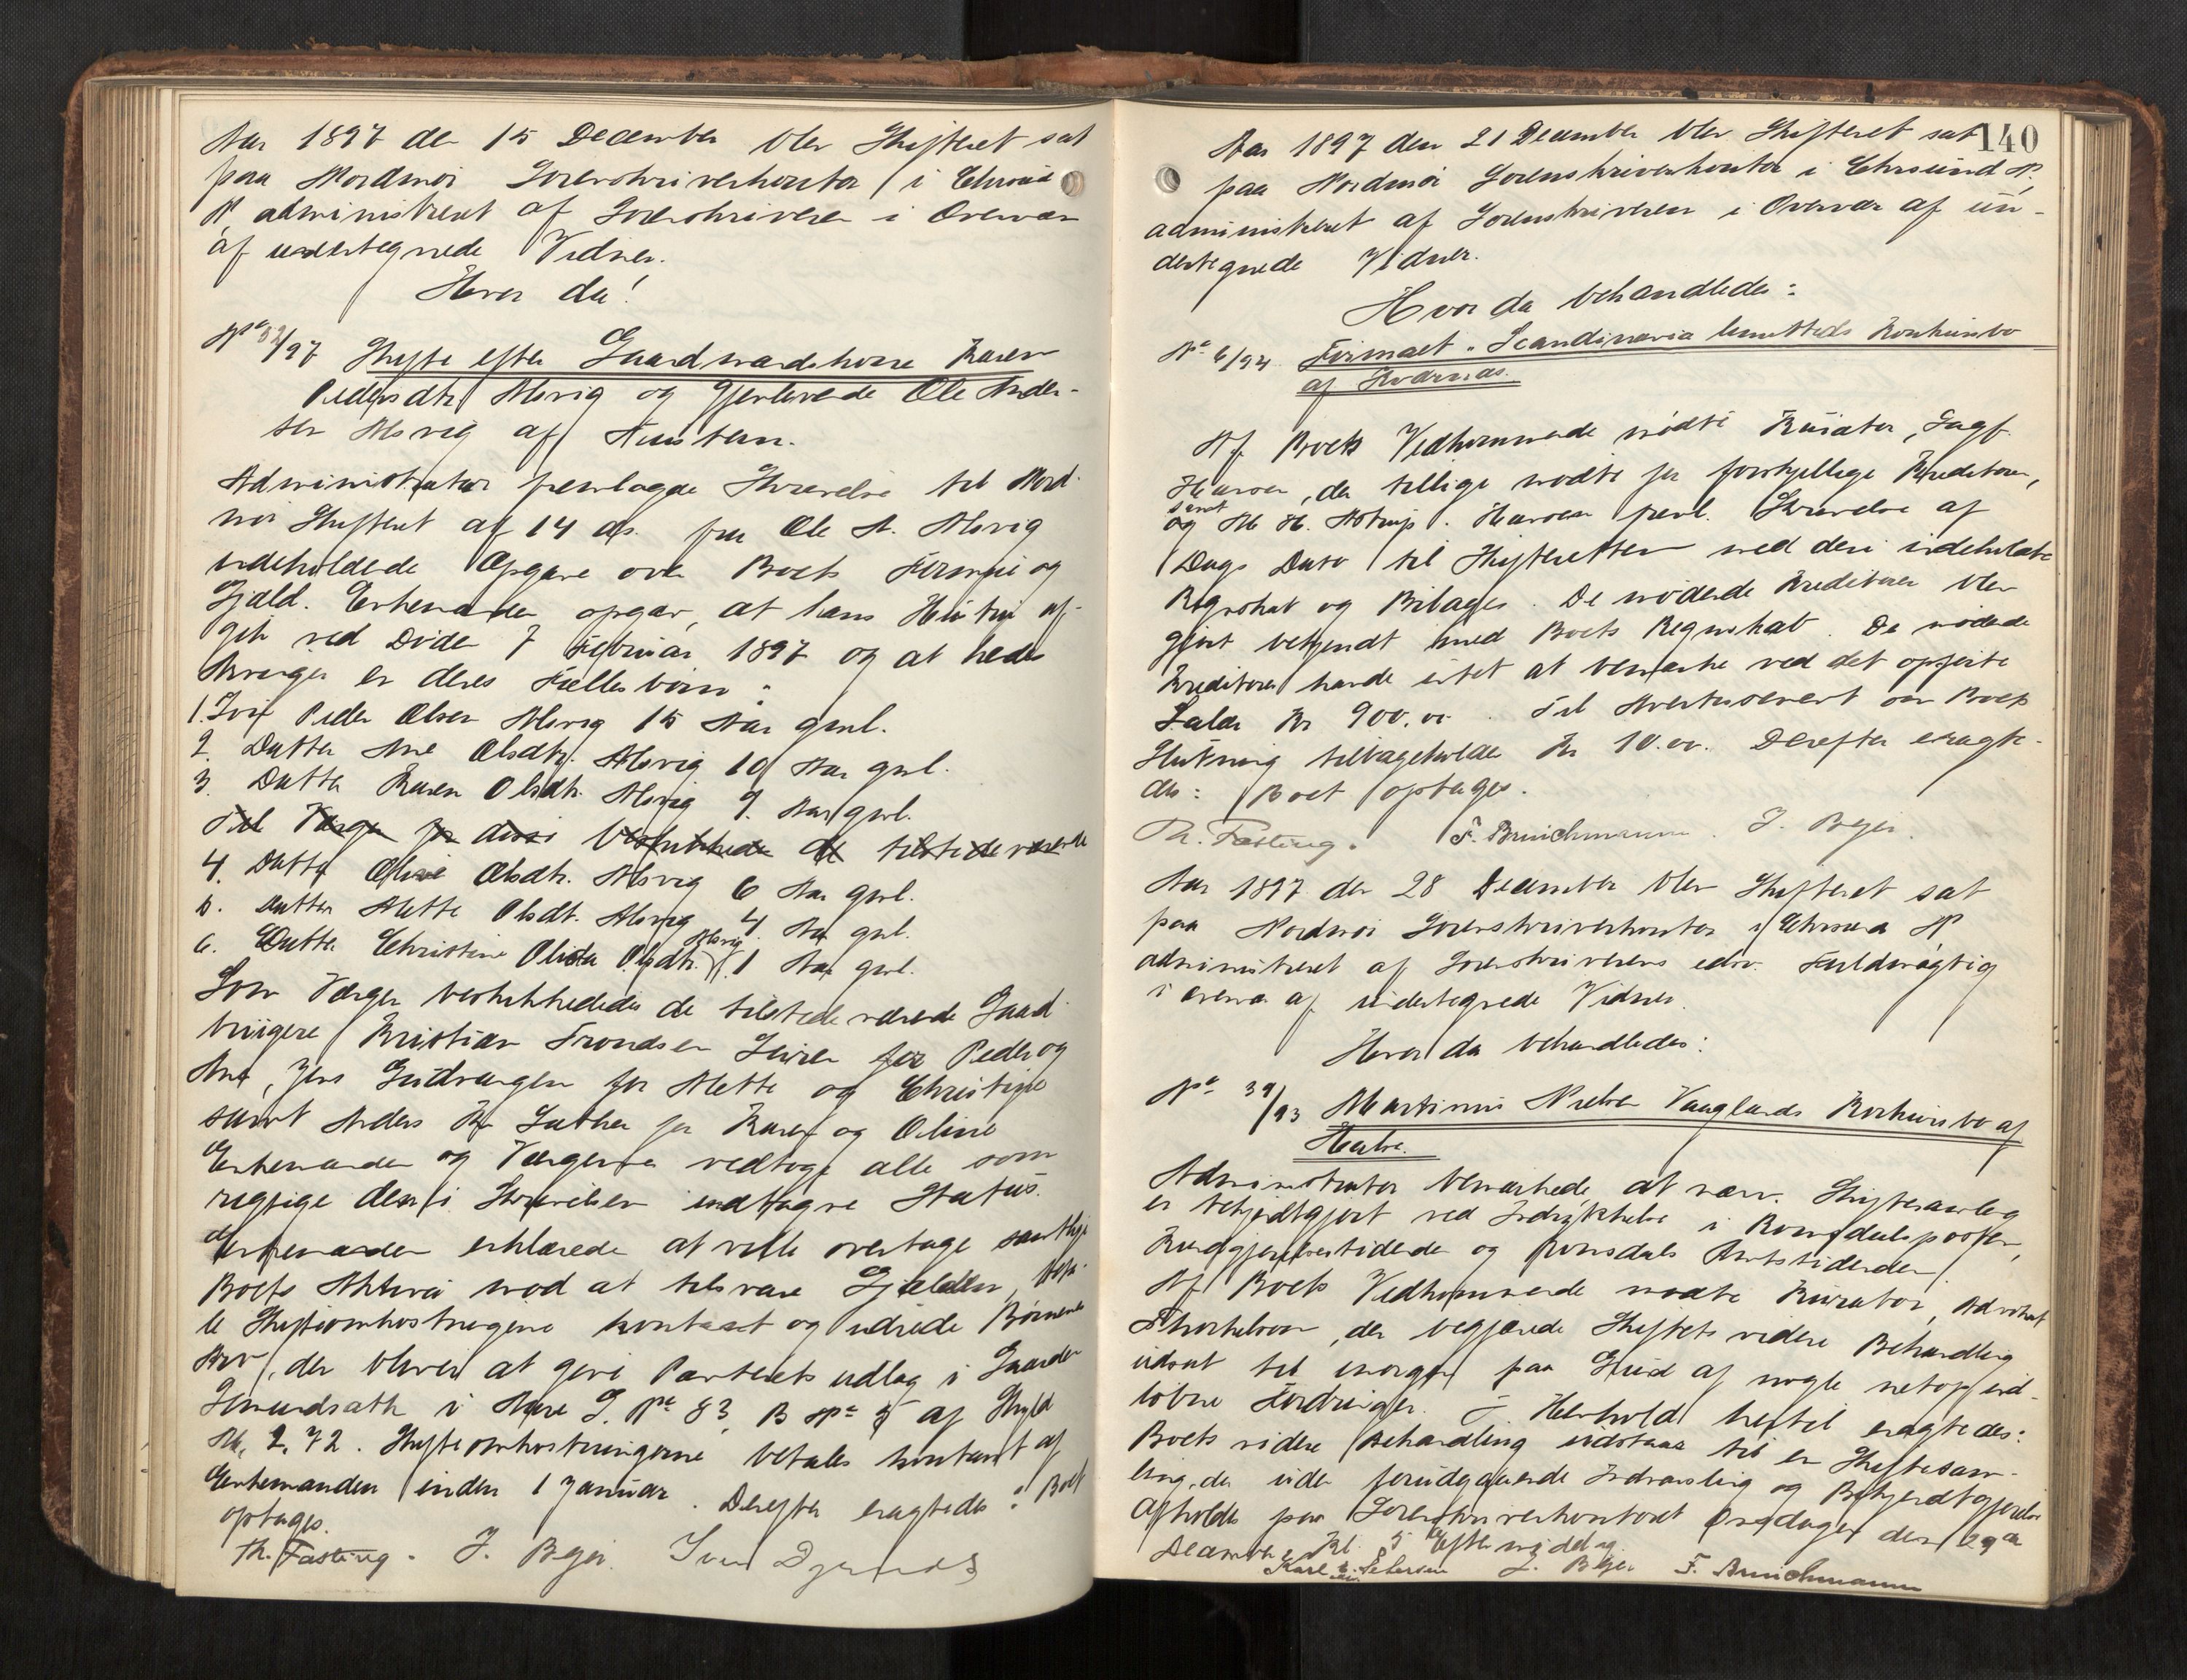 Aar 1897 den 15 December blev Skifteret sat
paa Nordmør Sorenskriverkontor i Chrsund
N, administreret af Sorenskriveren i Overvær
af undertegnede Vidner.
Hvor da!
No 32/97 Skifte efter Gaardmandskone Karen
Pedersdtr Alsvig og gjenlevende Ole Ander-
sen Alsvig af
Administrator fremlagde Skrivelse til Nord-
mør Skifteret af 14 ds. fra Ole A. Alsvig
indeholdende Opgave over Boets Formue og
Gjæld. Enkemanden opgav, at hans Hustru af-
gik ved Døden 7 Februar 1897 og at hendes
Arvinger er deres Fællesbørn:
1. Søn Peder Olsen Alsvig 15 Aar gml.
2. Datter Ane Olsdtr. Alsvig 10 Aar gml.
3. Datter Karen Olsdtr. Alsvig 9 Aar gml.
Til Værger for disse beskikkedes de tilstedeværende
4. Datter Oline Olsdtr. Alsvig 6 Aar gml.
5. Datter Mette Olsdt. Alsvig 4 Aar gml.
6. Datter Christine Olida Olsdtr. Alsvig 1 Aar gml.
Som Værger beskikkededes de tilstedeværende Gaard-
brugere Kristian Trondsen for Peder og
Ane, Jens for Mette og Christine
samt Anders Kr. for Karen og Oline
Enkemanden og Værgerne vedtoge alle som
rigtige den i Skrivelsen indtagne Status.
Enkemanden erklærede at ville overtage samtlige
Boets Aktiva mod at tilsvare Gjælden, beta-
le Skifteomkostningerne kontant og udrede Børnenes
Arv, der bliver at give Panterets udlag i Gaarden
i Aure G. No 83, B No 5 af Skyld
Mk. 2,72. Skifteomkostningerne betales kontant af
Enkemanden inden 1 Januar. Derefter eragtedes: Boet
optages.
Th. Fasting. J. Beyer.
140
Aar 1897 den 21 December blev Skifteret sat
paa Nordmør Sorenskriverkontor i Chrsund N,
administreret af Sorenskriveren i Overvær af un-
dertegnede Vidner.
Hvor da behandledes:
No 6/94 Firmaet "Scandinavia Konkursbo
af
Af Boets Vedkommende mødte Kurator, Sagf.
Hansen, der tillige mødte for forskjellige Kreditorer,
samt
og M. H. Astrup. Hansen freml. Skrivelse af
Dags Dato til Skifteretten med deri indeholdte
Regnskab og Bilager. De mødende Kreditorer blev
gjort bekjendt med Boets Regnskab. De mødende
Kreditorer havde intet at bemærke ved det opførte
Salær Kr 900.00. Til Avertissement om Boets
Slutning tilbageholdes Kr 10.00. Derefter eragte-
des: Boet optages.
Th. Fasting. F. Bruichmann. J. Beyer.
Aar 1897 den 28 December blev Skifteret sat
paa Nordmør Sorenskriverkontor i Chrsund N
administreret af Sorenskriverens edsv. Fuldmægtig
i overvær af undertegnede Vidner.
Hvor da behandledes:
No 39/93 Martinus Nielsen Vaaglands Konkursbo af
Halse.
Administrator bemærkede, at nærv. Skiftesamling
er bekjendtgjort ved Indrykkelse i Romsdalsposten,
Kundgjørelsestidende og Romsdals Amtstidende.
Af Boets Vedkommende mødte Kurator, Advokat
Thorkelson, der begjærede Skiftets videre Behandling
udsat til imorgen paa Grund af nogle netop ind-
løbne Fordringer. I Henhold hertil eragtedes:
Boets videre Behandling udstaar til en Skiftesam-
ling, der uden forudgaaende Indvarsling og Bekjendtgjørelse
afholdes paa Sorenskriverkontoret Onsdagen den 29de
December Kl. 5 Eftermiddag.
Karl Petersen J. Beyer F. Bruichmann